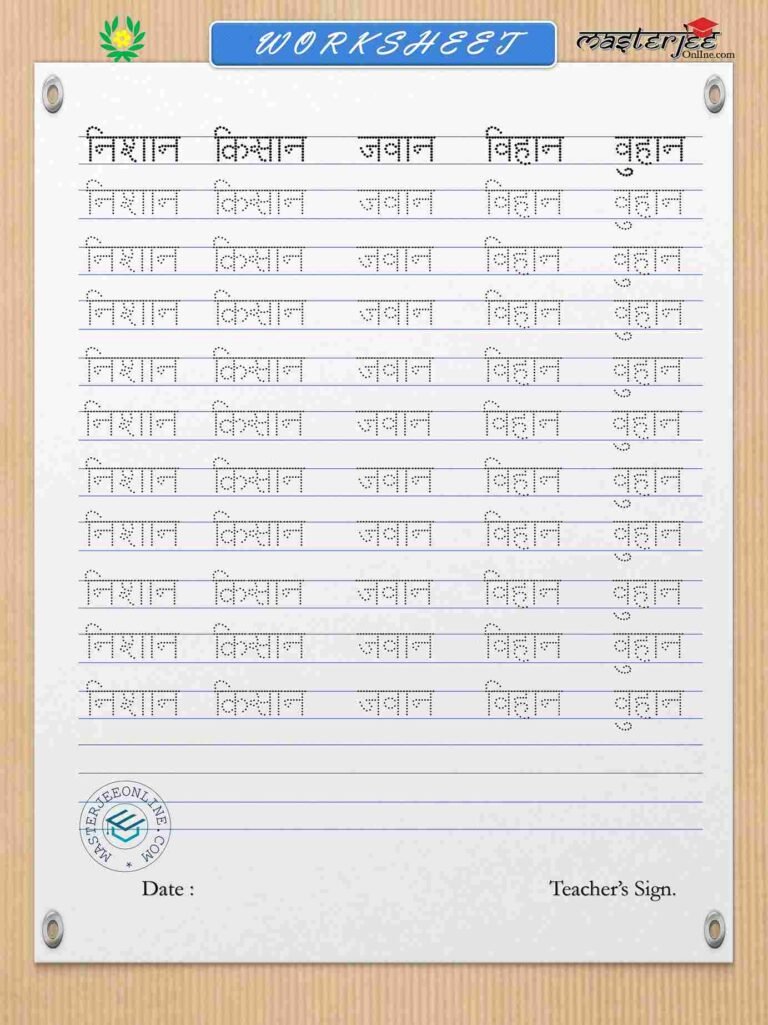 WORKSHEET
masterjee
Online.com
निशान किसान जवान विहान वुहान
निशान किसान जवान विहान वुहान
निशान किसान जवान विहान वुहान
निशान किसान जवान विहान वुहान
निशान किसान जवान विहान वुहान
निशान किसान जवान विहान वुहान
निशान किसान जवान विहान वुहान
निशान किसान जवान विहान वुहान
निशान किसान जवान विहान वुहान
निशान किसान जवान विहान वुहान
निशान किसान जवान विहान वुहान
MASTERJEEONLINE.COM
Date :
Teacher's Sign.